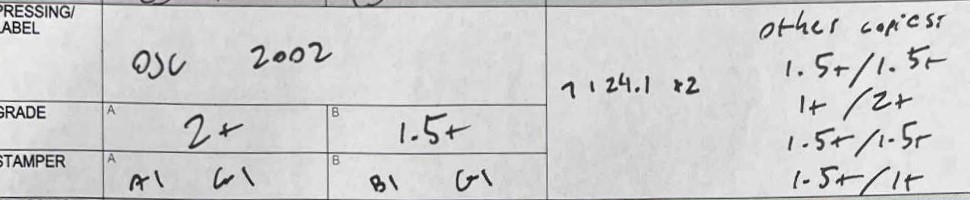 PRESSING/
LABEL
OJC 2002
GRADE
A
2+
B
1.5+
STAMPER
A
A1 G1
B
B1 G1
7124.1 x2
other copies:
1.5+/1.5+
1+ /2+
1.5+/1.5+
1.5+/1+